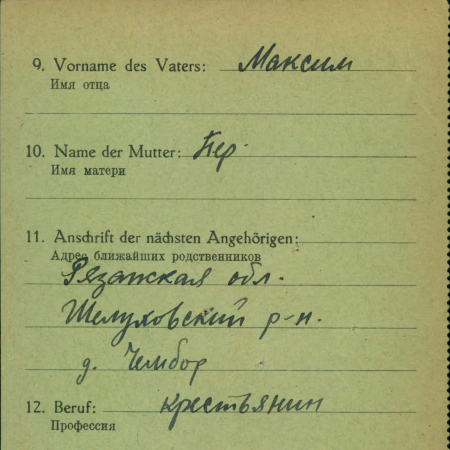 9. Vorname des Vaters: Максим
Имя отца
10. Name der Mutter: Пер
Имя матери
11. Anschrift der nächsten Angehörigen:
Адрес ближайших родственников
Рязанская обл.
Шелуховский р-н.
д. Чембор
12. Beruf: крестьянин
Профессия